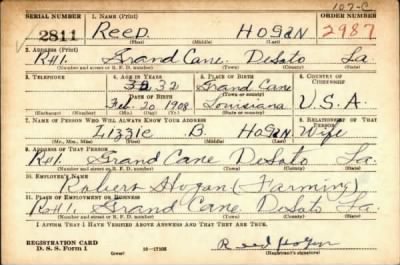 107-C
SERIAL NUMBER 1. NAME (Print) ORDER NUMBER
2811 Reed Hogan 2987
(First) (Middle) (Last)
2. ADDRESS (Print)
Rt#1. Grand Cane. DeSoto La
(Number and street or R. F. D. number) (Town) (County) (State)
3. TELEPHONE 4. AGE IN YEARS 5. PLACE OF BIRTH 6. COUNTRY OF CITIZENSHIP
32 Grand Cane
DATE OF BIRTH (Town or county)
Feb. 20 1908 Louisiana U.S.A.
(Exchange) (Number) (Mo.) (Day) (Yr.) (State or country)
7. NAME OF PERSON WHO WILL ALWAYS KNOW YOUR ADDRESS 8. RELATIONSHIP OF THAT PERSON
Lizzie B. Hogan Wife
(Mr., Mrs., Miss) (First) (Middle) (Last)
9. ADDRESS OF THAT PERSON
Rt#1. Grand Cane DeSoto La.
(Number and street or R. F. D. number) (Town) (County) (State)
10. EMPLOYER'S NAME
Robert Hogan (Farming)
11. PLACE OF EMPLOYMENT OR BUSINESS
Rt#1. Grand Cane, DeSoto La.
(Number and street or R. F. D. number) (Town) (County) (State)
I AFFIRM THAT I HAVE VERIFIED ABOVE ANSWERS AND THAT THEY ARE TRUE.
REGISTRATION CARD
D. S. S. Form 1 (over) 16—17105 Reed Hogan
(Registrant's signature)